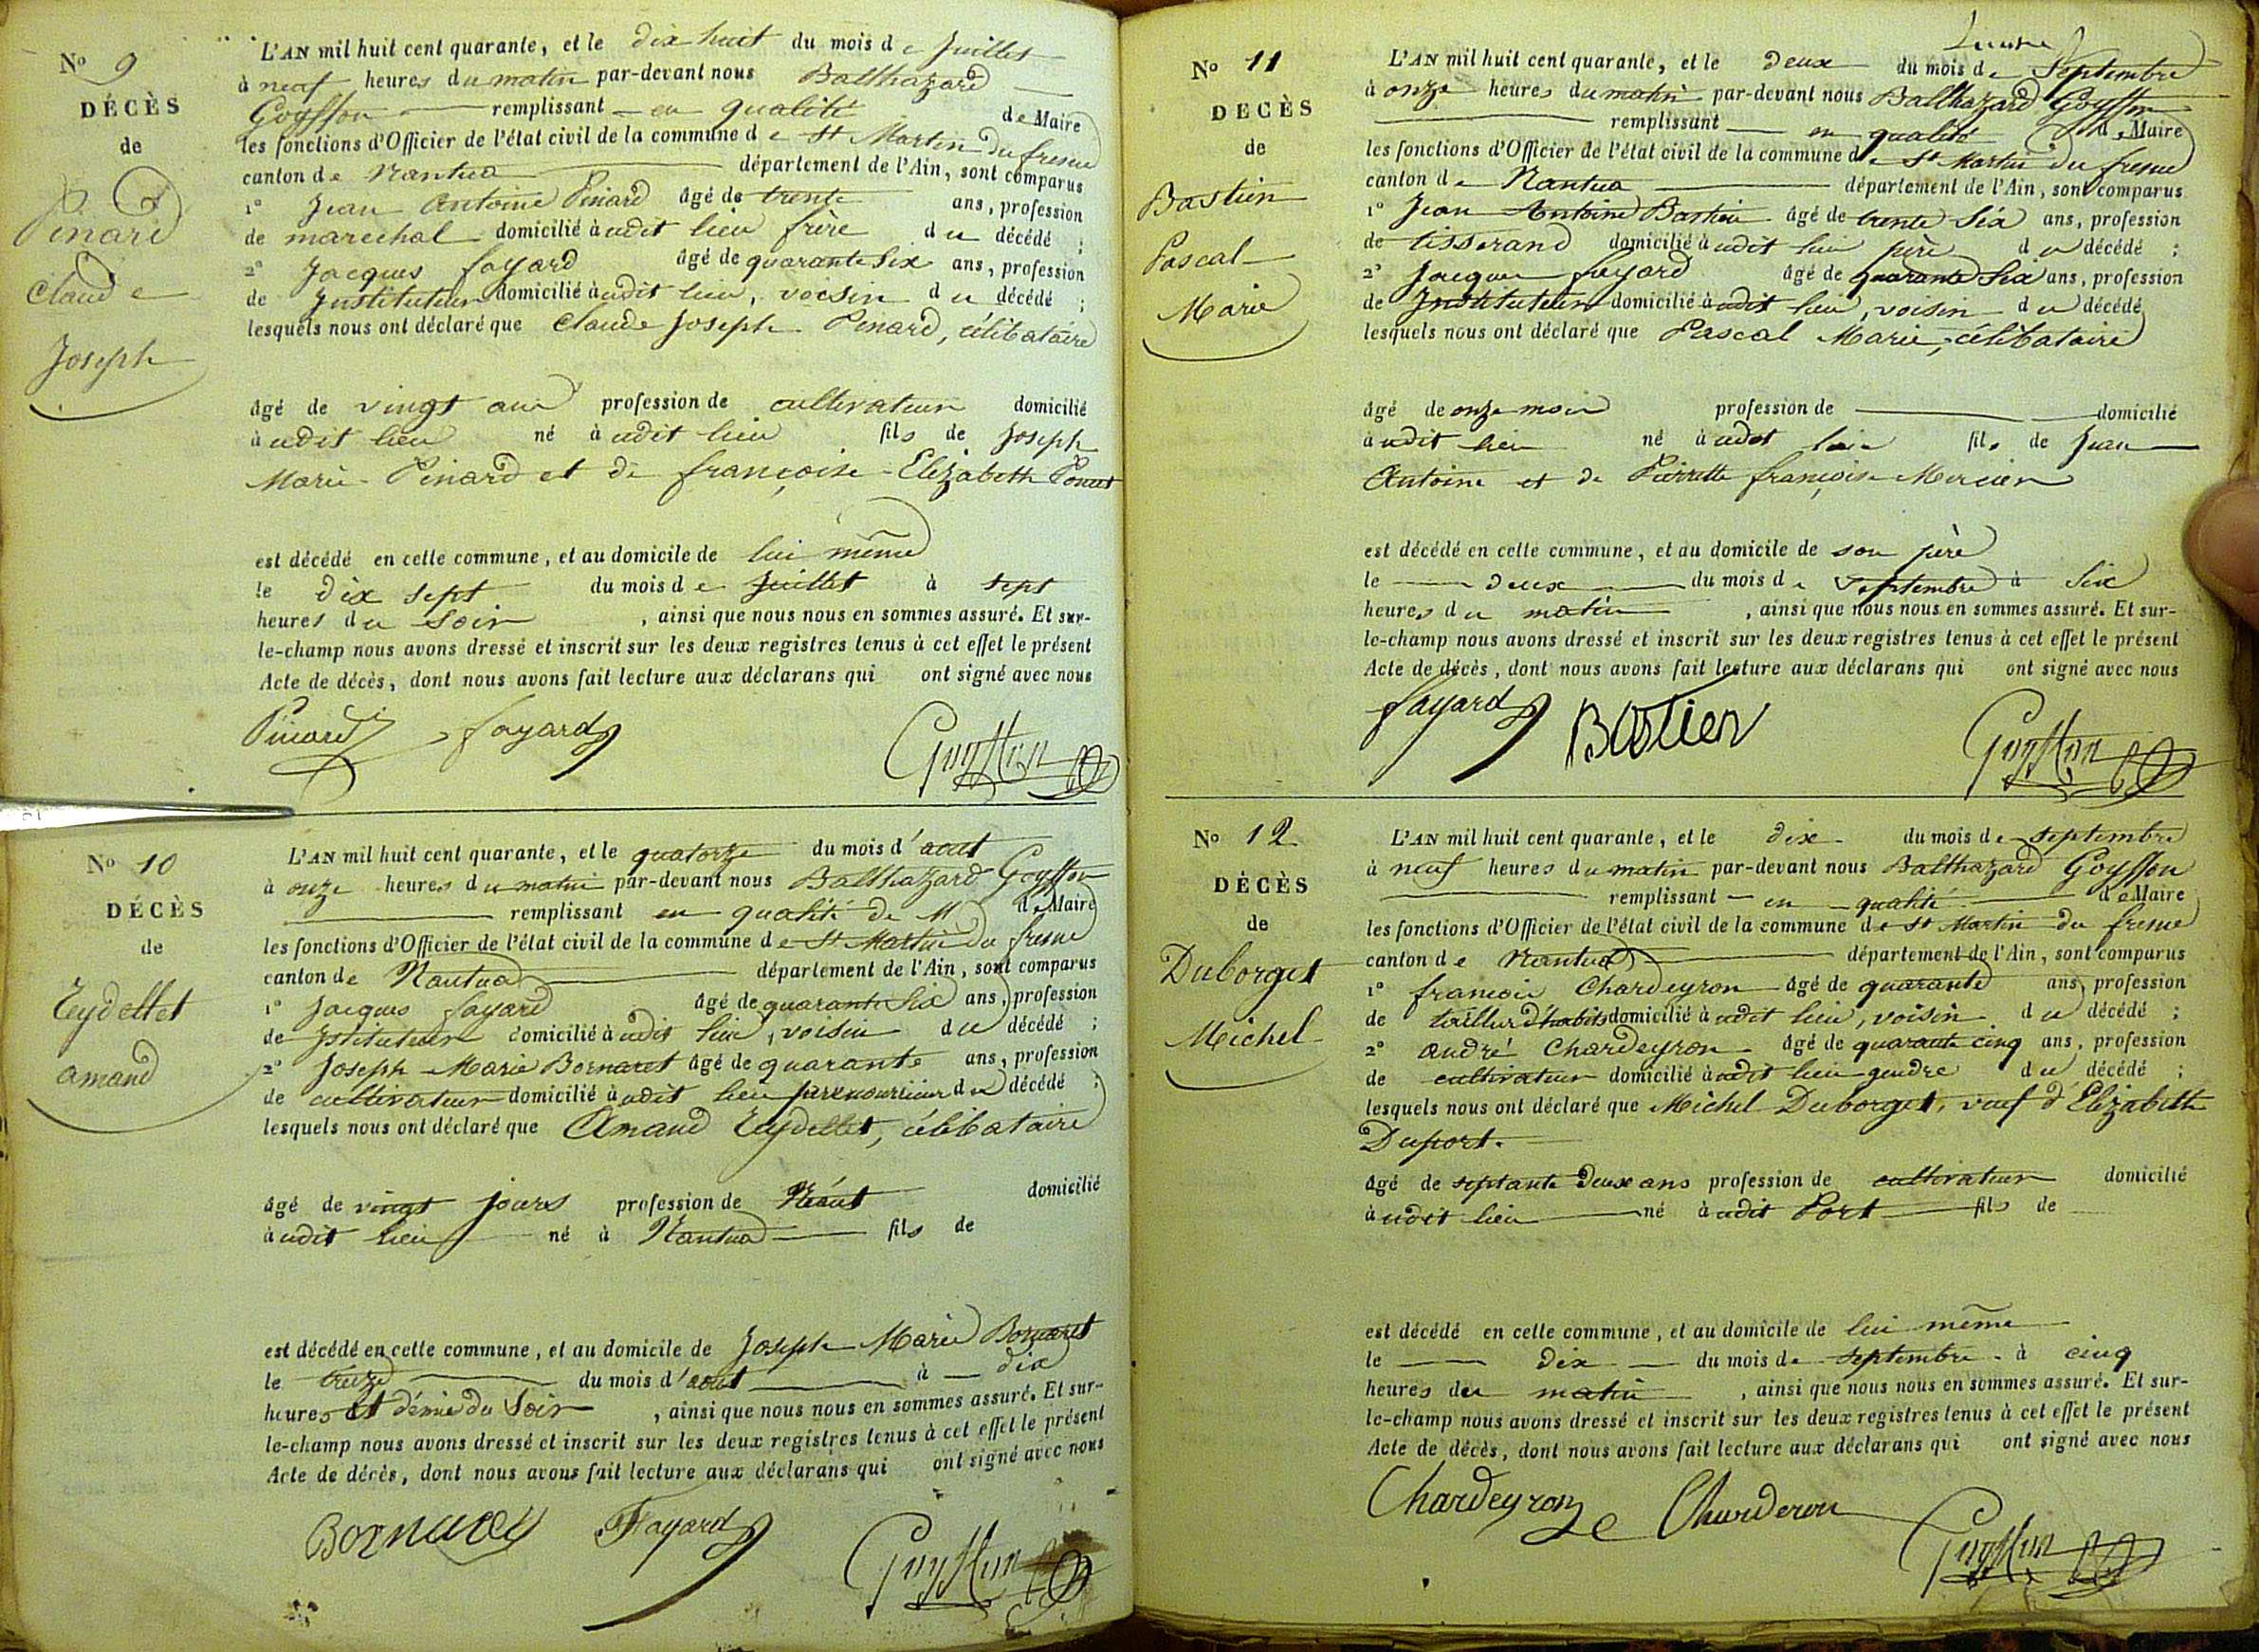 N° 9
DÉCÈS
de
Pinard
Claude
Joseph
L'AN mil huit cent quarante, et le dix huit du mois de Juillet
à neuf heures du matin par-devant nous Balthazard
Goyffon remplissant en qualité de Maire
les fonctions d'Officier de l'état civil de la commune de St Martin du fresne
canton de Nantua département de l'Ain, sont comparus
1° Jean Antoine Pinard âgé de trente ans, profession
de marechal domicilié audit lieu frère du décédé ;
2° Jacques fayard âgé de quarante Six ans, profession
de Instituteur domicilié audit lieu, voisin du décédé ;
lesquels nous ont déclaré que Claude Joseph Pinard, célibataire
âgé de vingt ans profession de cultivateur domicilié
audit lieu né audit lieu fils de Joseph
Marie Pinard et de françoise Elizabeth
est décédé en cette commune, et au domicile de lui même
le dix sept du mois de Juillet à sept
heures du Soir , ainsi que nous nous en sommes assuré. Et sur-
le-champ nous avons dressé et inscrit sur les deux registres tenus à cet effet le présent
Acte de décès, dont nous avons fait lecture aux déclarans qui ont signé avec nous
Pinard fayard Goyffon
N° 10
DÉCÈS
de
Reydellet
amand
L'AN mil huit cent quarante, et le quatorze du mois d'aout
à onze heures du matin par-devant nous Balthazard Goyffon
remplissant en qualité de M de Maire
les fonctions d'Officier de l'état civil de la commune de St Martin du fresne
canton de Nantua département de l'Ain, sont comparus
1° Jacques fayard âgé de quarante Six ans, profession
de Istituteur domicilié audit lieu, voisin du décédé ;
2° Joseph Marie Bornaret âgé de quarante ans, profession
de cultivateur domicilié audit lieu père nourricier du décédé ;
lesquels nous ont déclaré que Amand Reydellet, célibataire
âgé de vingt jours profession de Néant domicilié
audit lieu né à Nantua fils de
est décédé en cette commune, et au domicile de Joseph Marie Bornaret
le treize du mois d'aout à dix
heures et démie du Soir , ainsi que nous nous en sommes assuré. Et sur-
le-champ nous avons dressé et inscrit sur les deux registres tenus à cet effet le présent
Acte de décès, dont nous avons fait lecture aux déclarans qui ont signé avec nous
Fayard Goyffon
N° 11
DÉCÈS
de
Bastien
Pascal
Marie
L'AN mil huit cent quarante, et le deux du mois de Septembre
à onze heures du matin par-devant nous Balthazard Goyffon
remplissant en qualité de Maire
les fonctions d'Officier de l'état civil de la commune de St Martin du fresne
canton de Nantua département de l'Ain, sont comparus
1° Jean Antoine Bastien âgé de trente Six ans, profession
de tisserand domicilié audit lieu père du décédé ;
2° Jacques fayard âgé de quarante Six ans, profession
de Instituteur domicilié audit lieu, voisin du décédé
lesquels nous ont déclaré que Pascal Marie, célibataire
âgé de onze mois profession de domicilié
audit lieu né audit lieu fils de Jean
Antoine et de Pierrette françoise Mercier
est décédé en cette commune, et au domicile de son père
le deux du mois de Septembre à Six
heures du matin , ainsi que nous nous en sommes assuré. Et sur-
le-champ nous avons dressé et inscrit sur les deux registres tenus à cet effet le présent
Acte de décès, dont nous avons fait lecture aux déclarans qui ont signé avec nous
fayard Bastien Goyffon
N° 12
DÉCÈS
de
Duborget
Michel
L'AN mil huit cent quarante, et le dix du mois de Septembre
à neuf heures du matin par-devant nous Balthazard Goyffon
remplissant en qualité de Maire
les fonctions d'Officier de l'état civil de la commune de St Martin du fresne
canton de Nantua département de l'Ain, sont comparus
1° françois Chardeyron âgé de quarante ans, profession
de taillur d'habits domicilié audit lieu, voisin du décédé ;
2° andré Chardeyron âgé de quarante cinq ans, profession
de cultivateur domicilié audit lieu gendre du décédé ;
lesquels nous ont déclaré que Michel Duborget, veuf d'Elizabeth
Duport.
âgé de septante deux ans profession de cultivateur domicilié
audit lieu né audit Port fils de
est décédé en cette commune, et au domicile de lui même
le dix du mois de Septembre à cinq
heures du matin , ainsi que nous nous en sommes assuré. Et sur-
le-champ nous avons dressé et inscrit sur les deux registres tenus à cet effet le présent
Acte de décès, dont nous avons fait lecture aux déclarans qui ont signé avec nous
Chardeyron Charderon Goyffon